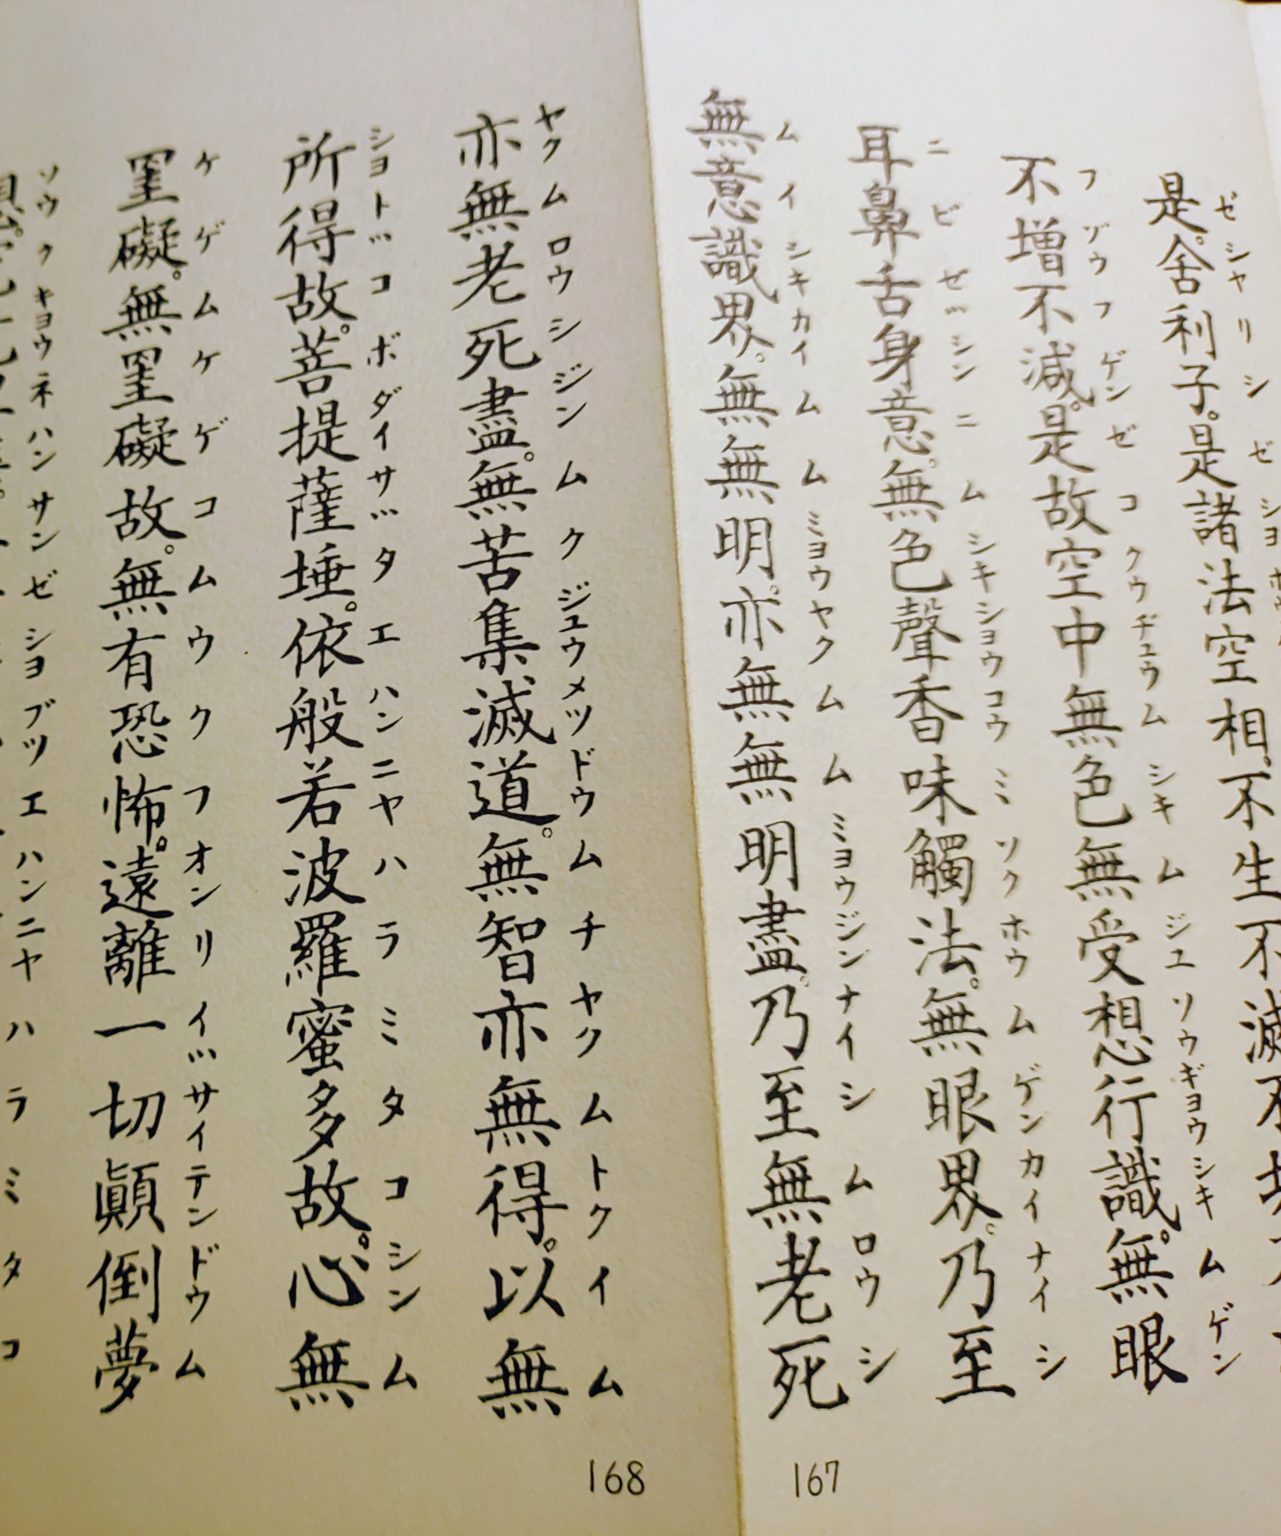 ゼシャリシゼショ
是。舍利子。是諸法空相。不生不滅不
フゾウフゲンゼコクウヂュウムシキムジュソウギョウシキムゲン
不増不減。是故空中無色無受想行識。無眼
ニビゼッシンニムシキショウコウミソクホウムゲンカイナイシ
耳鼻舌身意。無色聲香味觸法。無眼界。乃至
ムイシキカイムムミョウヤクムムミョウジンナイシムロウシ
無意識界。無無明。亦無無明盡。乃至無老死
167
ヤクムロウシジンムクジュウメツドウムチヤクムトクイム
亦無老死盡。無苦集滅道。無智亦無得。以無
ショトッコボダイサッタエハンニヤハラミタコシンム
所得故。菩提薩埵。依般若波羅蜜多故。心無
ケゲムケゲコムウクフオンリイッサイテンドウム
罣礙。無罣礙故。無有恐怖。遠離一切顚倒夢
ソウクキョウネハンサンゼショブツエハンニヤハラミタコ
168